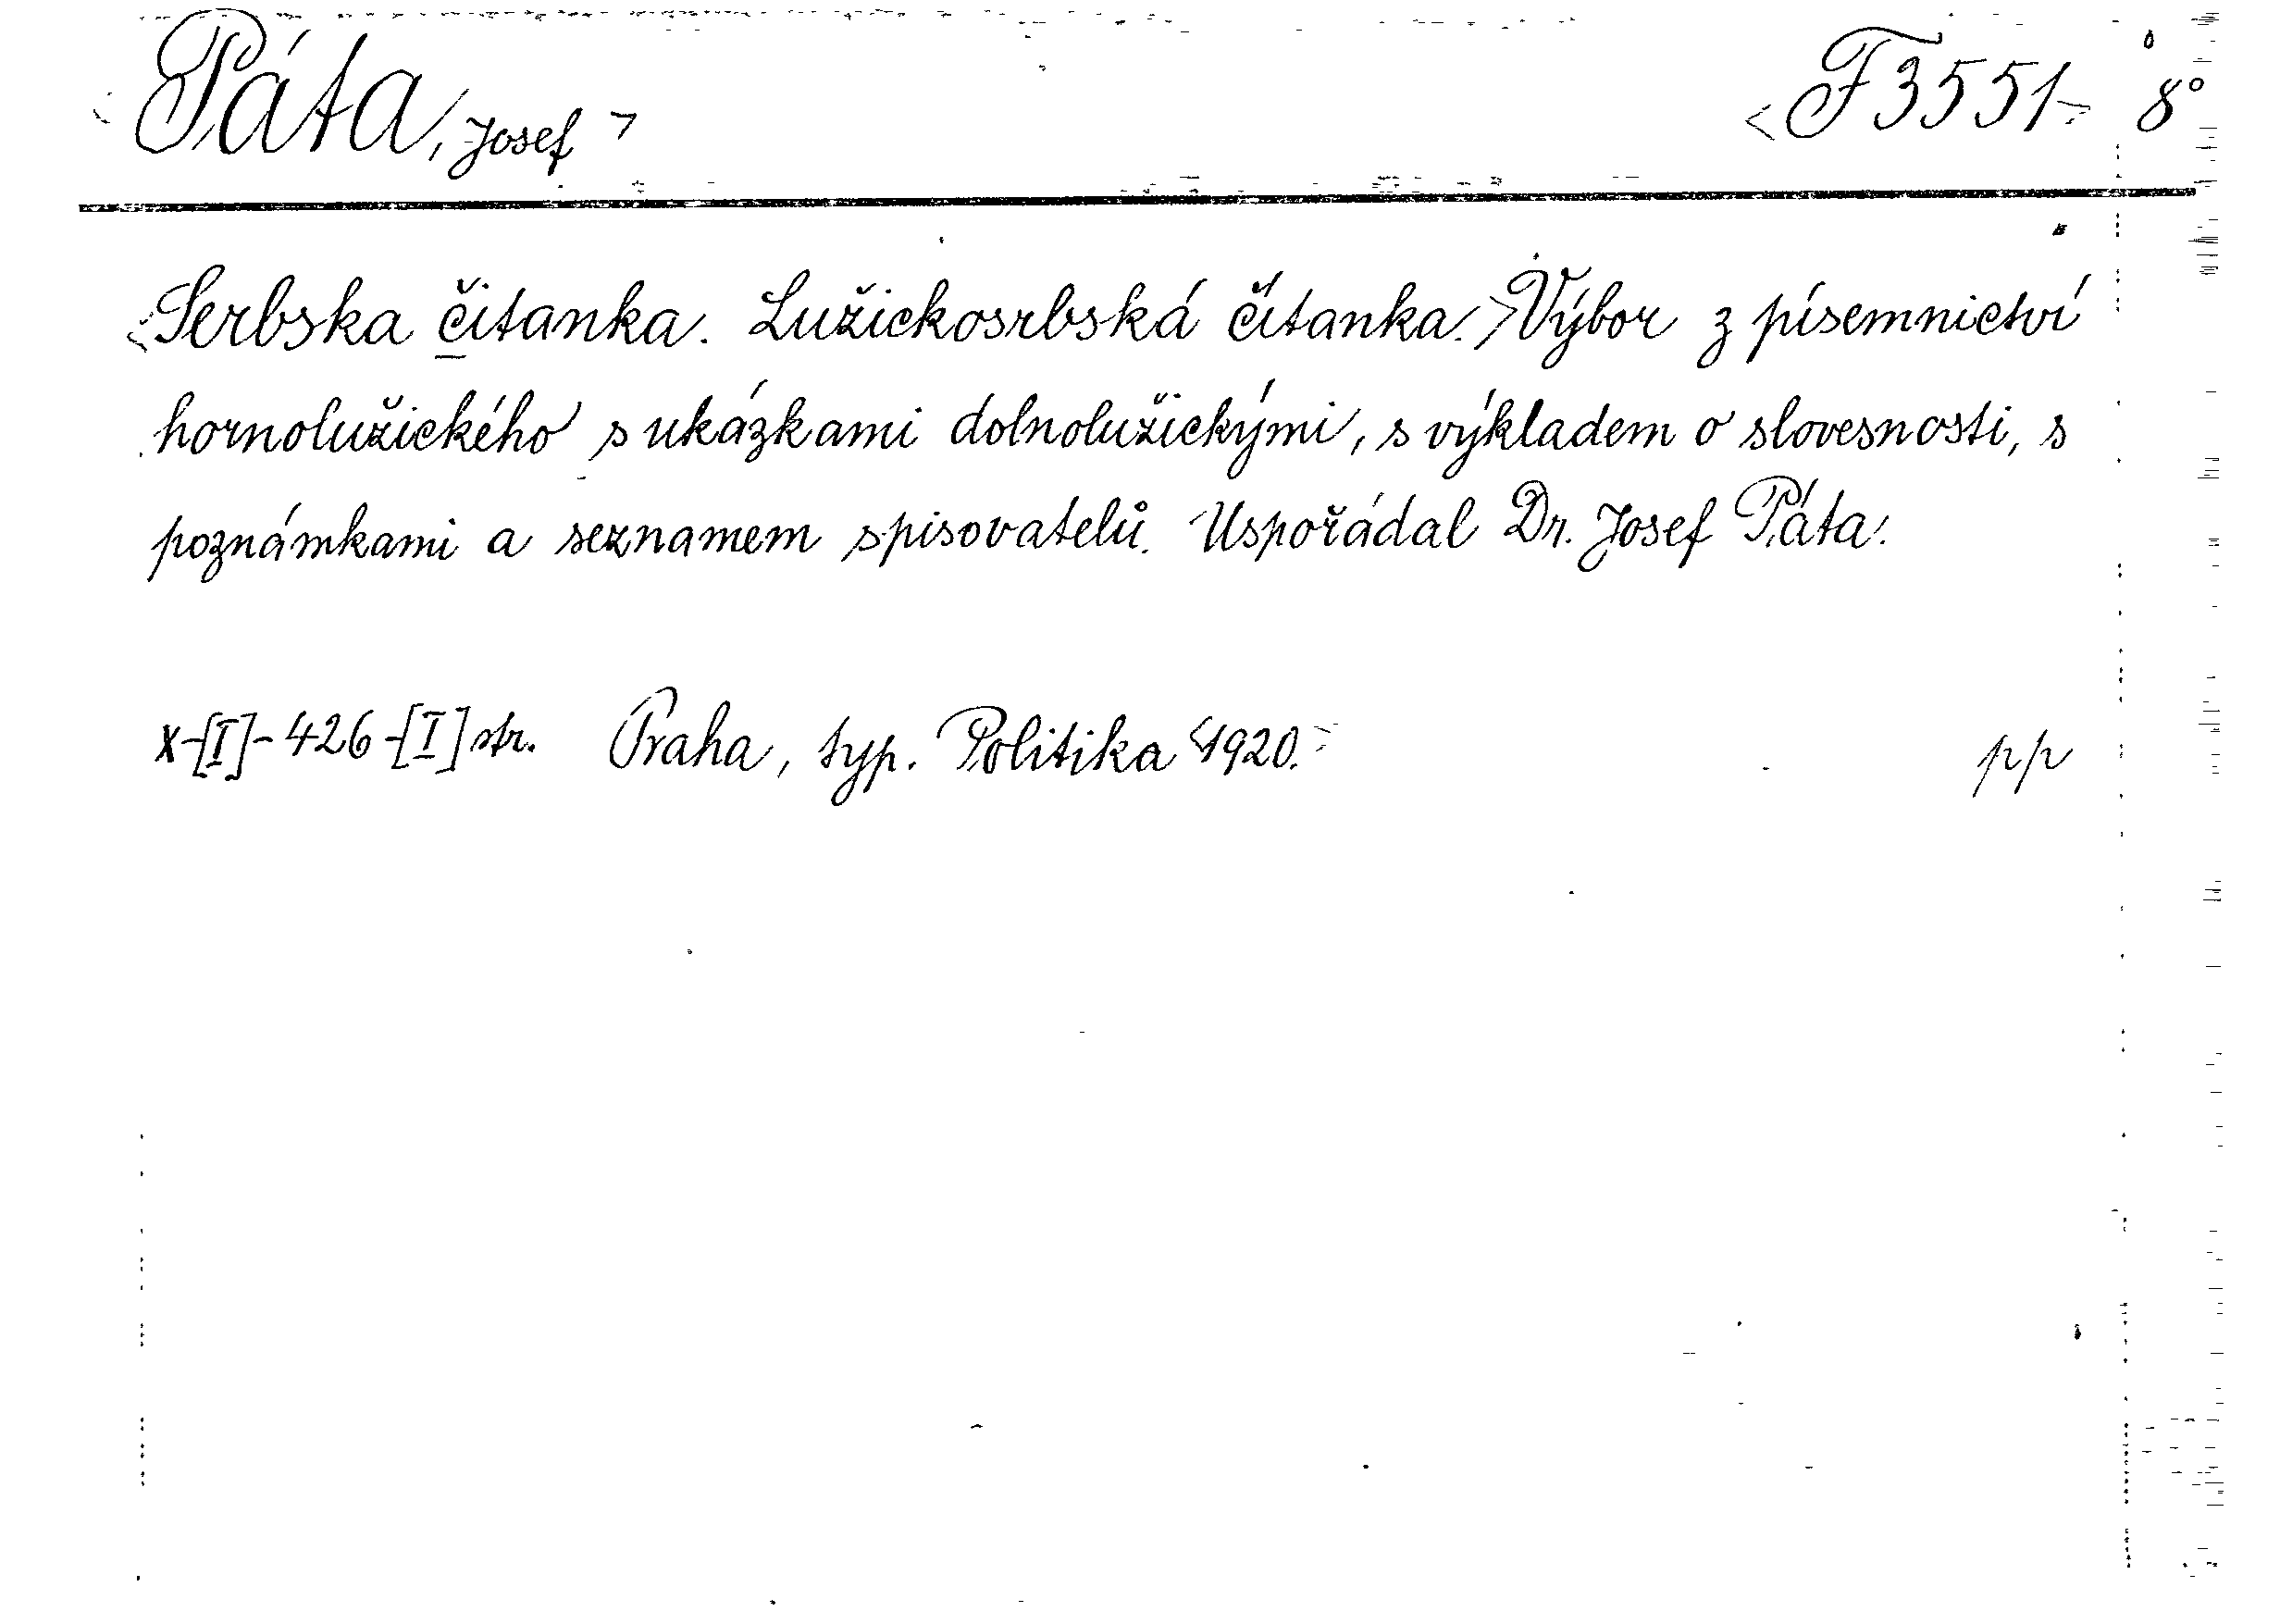 <Páta, Josef> <F 3551> 8°
<Serbska čitanka. Lužickosrbská čítanka.> Výbor z písemnictví
hornolužického s ukázkami dolnolužickými, s výkladem o slovesnosti, s
poznámkami a seznamem spisovatelů. Uspořádal Dr. Josef Páta.
X-[I]-426-[I] str. Praha, typ. Politika <1920.> pp